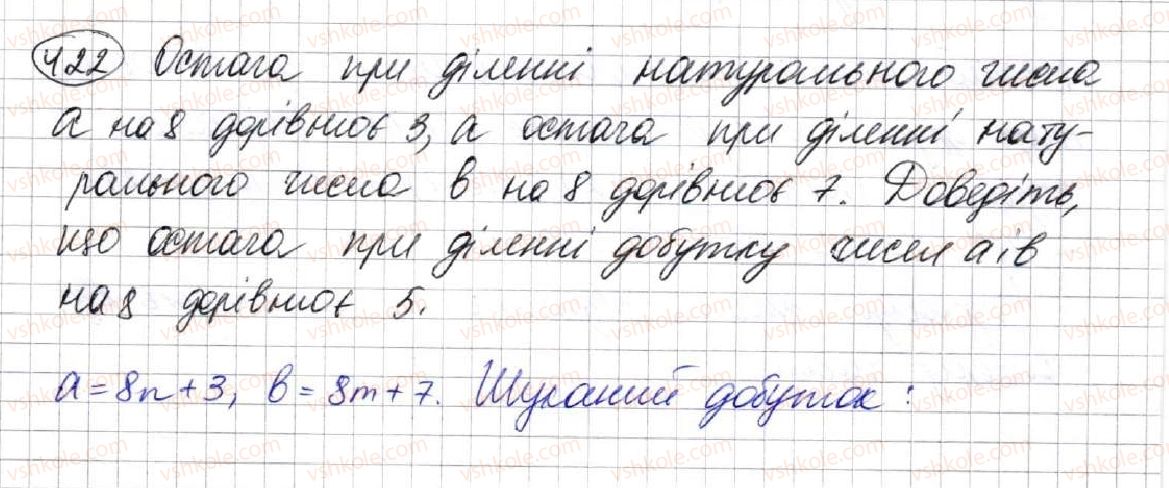 422 Остача при діленні натурального числа
a на 8 дорівнює 3, а остача при діленні нату-
рального числа b на 8 дорівнює 7. Доведіть,
що остача при діленні добутку чисел a і b
на 8 дорівнює 5.
a = 8n + 3, b = 8m + 7. Шуканий добуток :